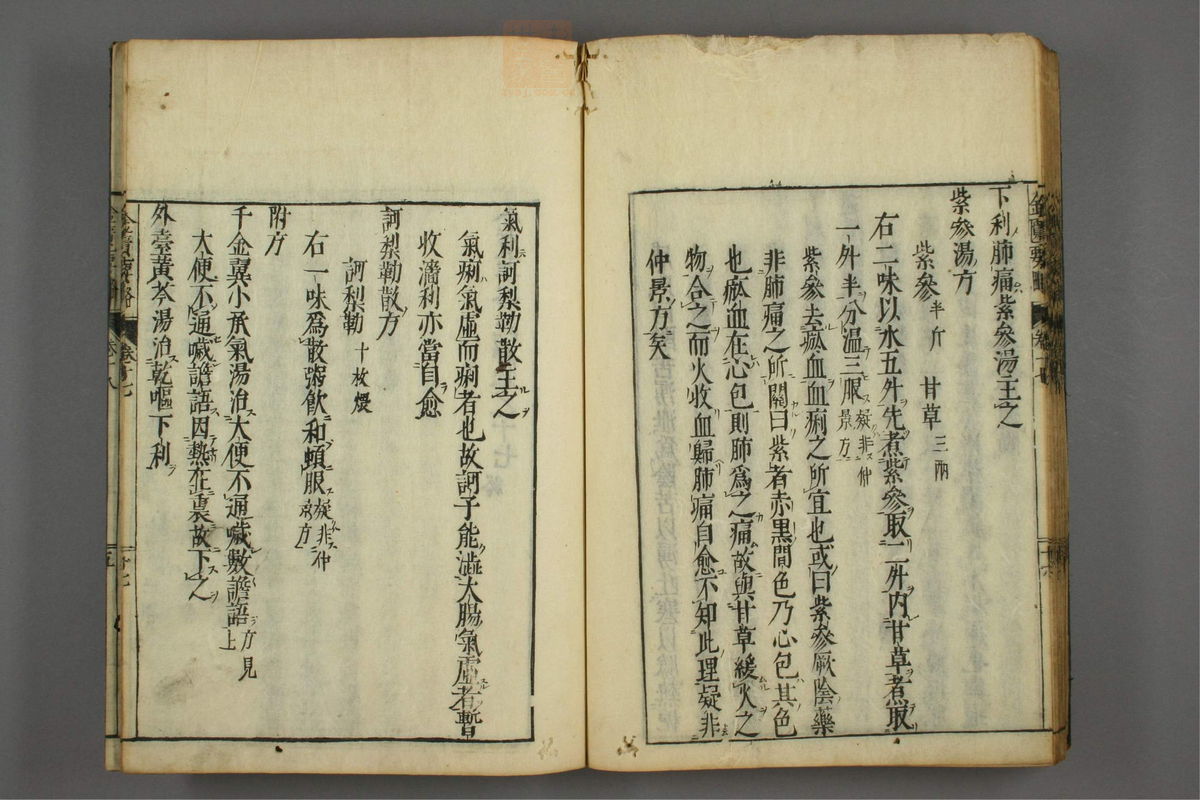 下利肺痛紫參湯主之
紫參湯方
紫參半斤 甘草三兩
右二味以水五升先煮紫參取二升內甘草煮取
一升半分溫三服疑非仲景方
紫參去瘀血血痢之所宜也或曰紫參厥陰藥
非肺痛之所關曰紫者赤黒間色乃心包其色
也瘀血在心包則肺爲之痛故與甘草緩火之
物合之而火收血歸肺痛自愈不知此理疑非
仲景方矣
氣利訶梨勒散主之
氣痢氣虛而痢者也故訶子能澁大腸氣虛者暫
收濇利亦當自愈
訶梨勒散方
訶梨勒十枚煨
右一味爲散粥飲和頓服疑非仲景方
附方
千金翼小承氣湯治大便不通噦數譫語方見上
大便不通噦譫語因熱在裏故下之
外臺黃芩湯治乾嘔下利